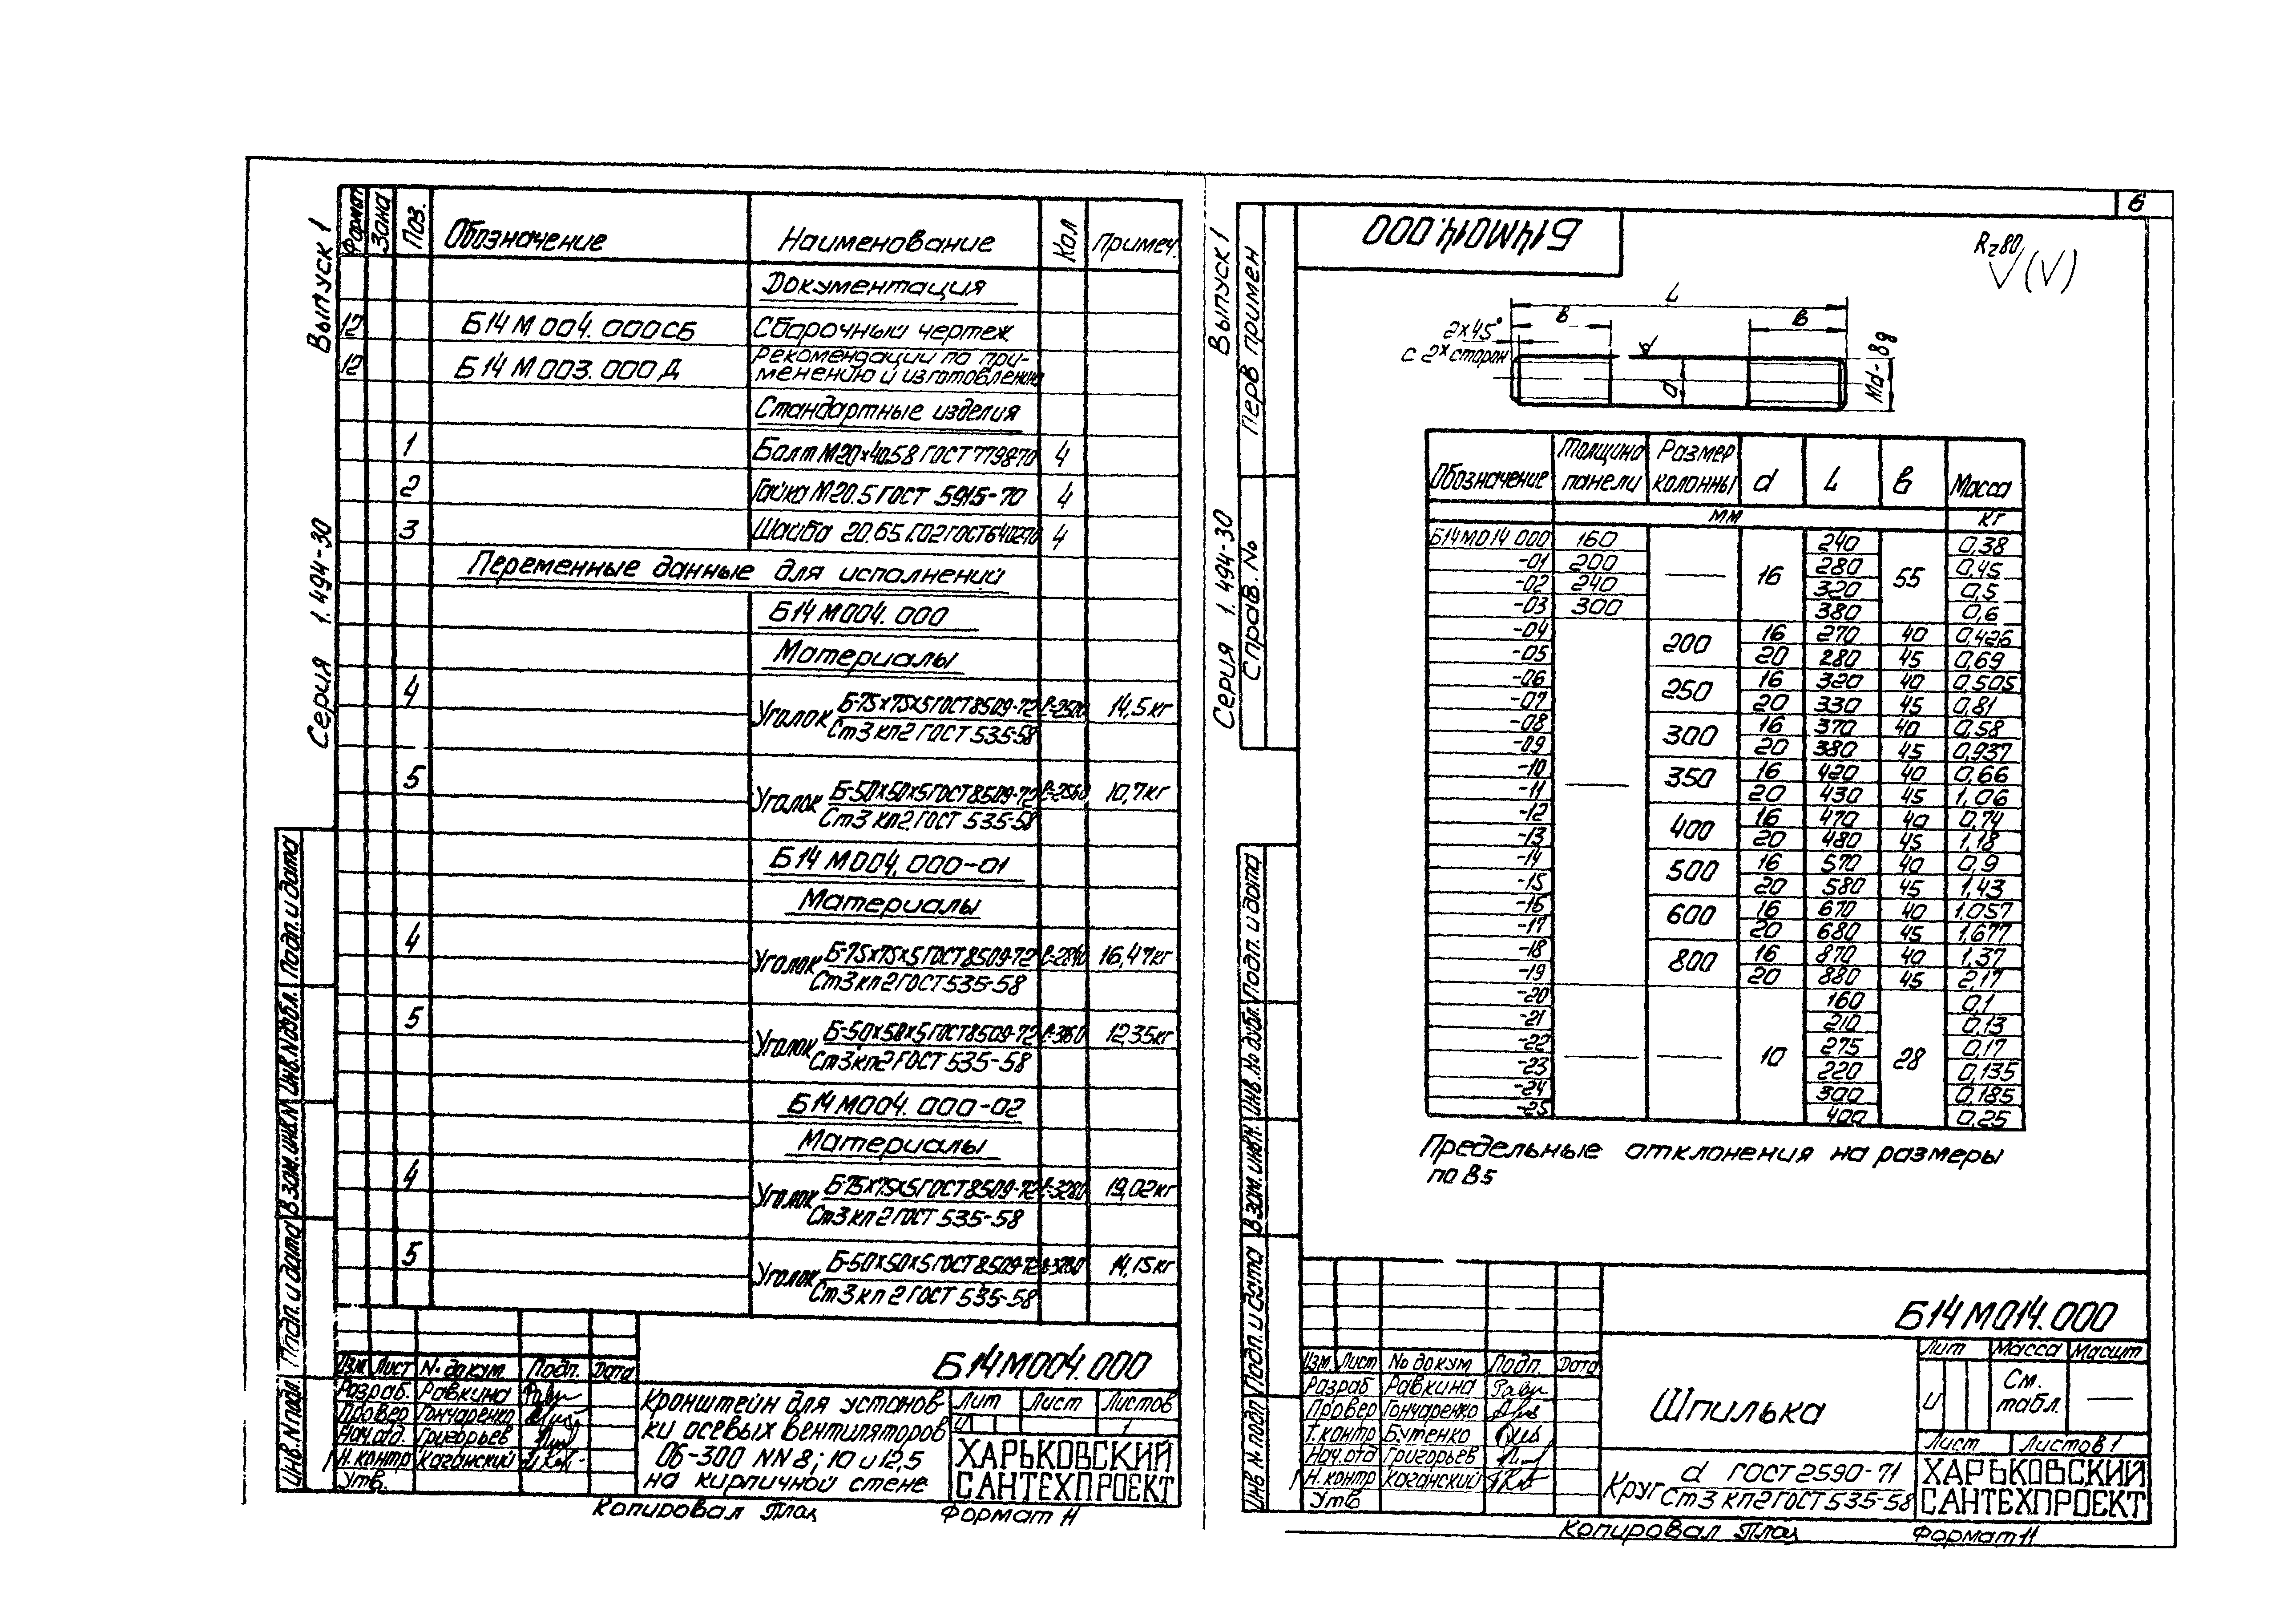 Выпуск 1
Серия 1.494-30
Формат Зона Поз. Обозначение Наименование Кол Примеч.
Документация
12 Б14М004.000СБ Сборочный чертеж
12 Б14М003.000Д Рекомендации по при-
менению и изготовлению
Стандартные изделия
1 Болт М20×40.58 ГОСТ 7798-70 4
2 Гайка М20.5 ГОСТ 5915-70 4
3 Шайба 20.65Г.02 ГОСТ 6402-70 4
Переменные данные для исполнений
Б14М004.000
Материалы
4 Уголок Б-75×75×5 ГОСТ 8509-72 ℓ-2500 14,5 кг
Ст3 кп2 ГОСТ 535-58
5 Уголок Б-50×50×5 ГОСТ 8509-72 10,7 кг
Ст3 кп2 ГОСТ 535-58
Б14М004.000-01
Материалы
4 Уголок Б-75×75×5 ГОСТ 8509-72 ℓ-2840 16,47 кг
Ст3 кп2 ГОСТ 535-58
5 Уголок Б-50×50×5 ГОСТ 8509-72 12,35 кг
Ст3 кп2 ГОСТ 535-58
Б14М004.000-02
Материалы
4 Уголок Б-75×75×5 ГОСТ 8509-72 ℓ-3280 19,02 кг
Ст3 кп2 ГОСТ 535-58
5 Уголок Б-50×50×5 ГОСТ 8509-72 14,15 кг
Ст3 кп2 ГОСТ 535-58
Подп. и дата
Инв. № дубл.
Взам. инв. №
Подп. и дата
Инв. № подл.
Изм Лист № докум. Подп. Дата
Разраб. Равкина
Провер Гончаренко
Нач.отд. Григорьев
Н. контр Каганский
Утв.
Б14М004.000
Кронштейн для установ-
ки осевых вентиляторов
06-300 NN 8; 10 и 12,5
на кирпичной стене
Лит Лист Листов
И 1
ХАРЬКОВСКИЙ
САНТЕХПРОЕКТ
Копировал Формат 11
6
Выпуск 1
Серия 1.494-30
Перв примен
Справ. №
Б14М014.000
Rz80
(√)
L
в в
2×45°
с 2х сторон
d
Md-8g
Обозначение Толщина панели Размер колонны d L в Масса
мм кг
Б14М014 000 160 — 16 240 55 0,38
-01 200 280 0,45
-02 240 320 0,5
-03 300 380 0,6
-04 — 200 16 270 40 0,426
-05 20 280 45 0,69
-06 250 16 320 40 0,505
-07 20 330 45 0,81
-08 300 16 370 40 0,58
-09 20 380 45 0,937
-10 350 16 420 40 0,66
-11 20 430 45 1,06
-12 400 16 470 40 0,74
-13 20 480 45 1,18
-14 500 16 570 40 0,9
-15 20 580 45 1,43
-16 600 16 670 40 1,057
-17 20 680 45 1,677
-18 800 16 870 40 1,37
-19 20 880 45 2,17
-20 — — 10 160 28 0,1
-21 210 0,13
-22 275 0,17
-23 220 0,135
-24 300 0,185
-25 400 0,25
Предельные отклонения на размеры
по В5
Подп. и дата
Инв. № дубл.
Взам. инв. №
Подп. и дата
Инв № подл
Изм. Лист № докум Подп. Дата
Разраб Равкина
Провер Гончаренко
Т. контр Бутенко
Нач.отд Григорьев
Н. контр Каганский
Утв
Б14М014.000
Шпилька
Лит Масса Масшт
И См. табл. —
Лист Листов 1
Круг d ГОСТ 2590-71
Ст3 кп2 ГОСТ 535-58
ХАРЬКОВСКИЙ
САНТЕХПРОЕКТ
Копировал Формат 11